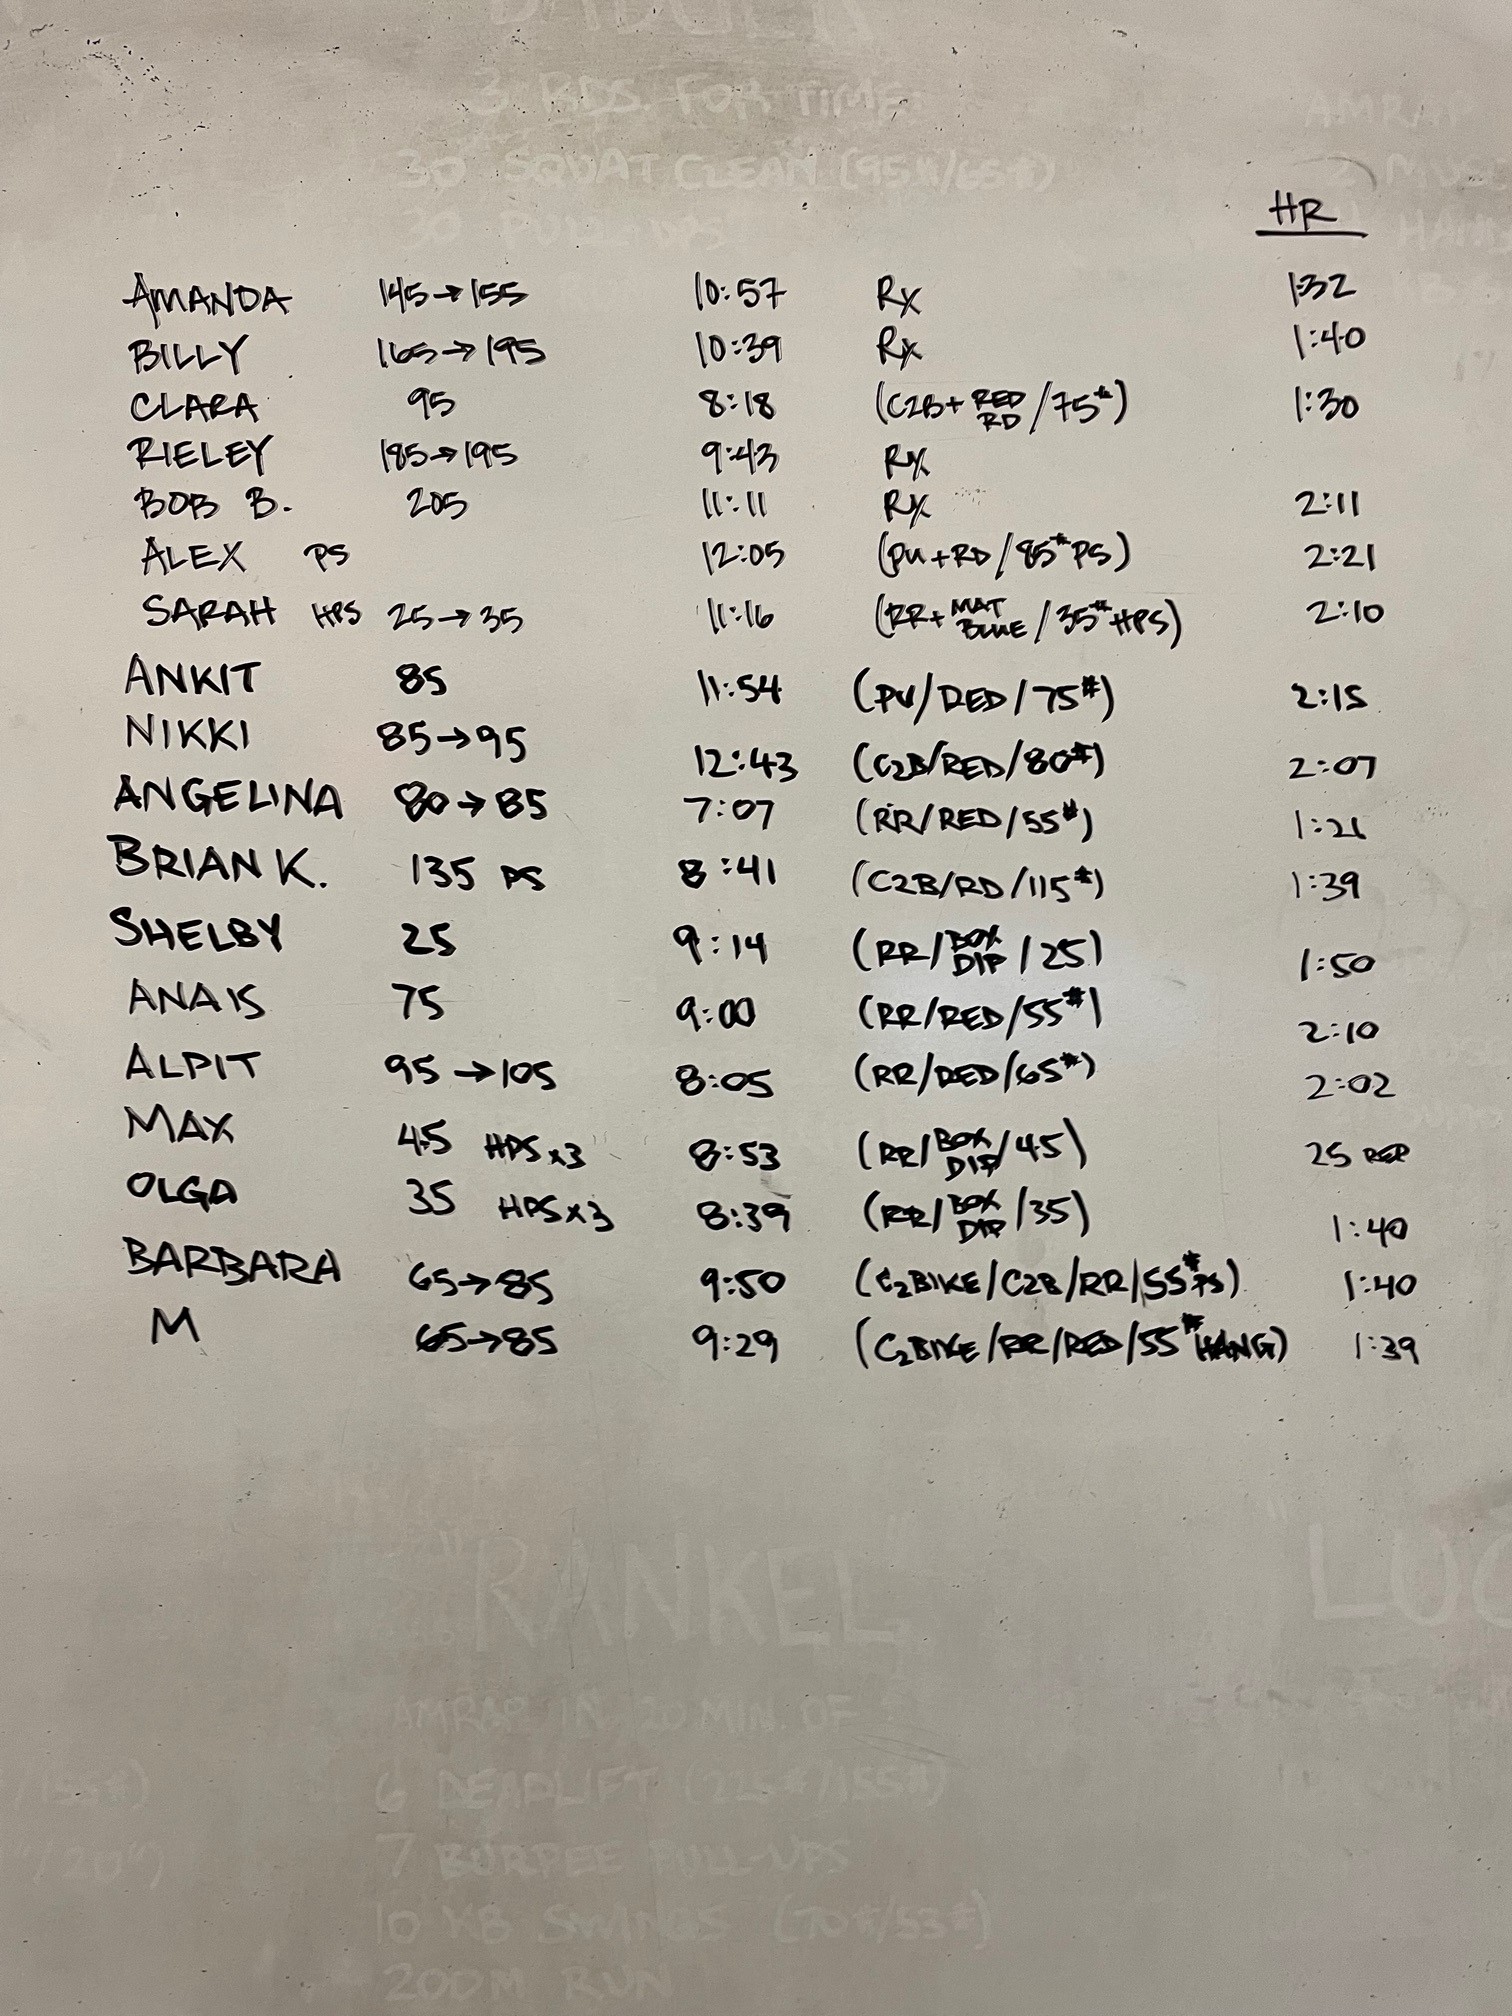 3 RDS. FOR TIME:
30 SQUAT CLEAN (95#/65#)
30 PULL UPS
AMRAP
HR
AMANDA 145→155 10:57 Rx 1:32
BILLY 165→195 10:39 Rx 1:40
CLARA 95 8:18 (C2B+ RED RD /75#) 1:30
RIELEY 185→195 9:43 Rx
BOB B. 205 11:11 Rx 2:11
ALEX PS 12:05 (PU+RD/85# PS) 2:21
SARAH HPS 25→35 11:16 (RR+ MAT BLUE /35# HPS) 2:10
ANKIT 85 11:54 (PU/RED/75#) 2:15
NIKKI 85→95 12:43 (C2B/RED/80#) 2:07
ANGELINA 80→85 7:07 (RR/RED/55#) 1:21
BRIAN K. 135 PS 8:41 (C2B/RD/115#) 1:39
SHELBY 25 9:14 (RR/BOX DIP/25) 1:50
ANAIS 75 9:00 (RR/RED/55#) 2:10
ALPIT 95→105 8:05 (RR/RED/65#) 2:02
MAX 45 HPS x3 8:53 (RR/BOX DIP/45) 25 REP
OLGA 35 HPS x3 8:39 (RR/BOX DIP/35) 1:40
BARBARA 65→85 9:50 (C2BIKE/C2B/RR/55# PS) 1:40
M 65→85 9:29 (C2BIKE/RR/RED/55# HANG) 1:39
"RANKEL"
AMRAP IN 20 MIN. OF
6 DEADLIFT (225#/155#)
7 BURPEE PULL-UPS
10 KB SWINGS (70#/53#)
200M RUN